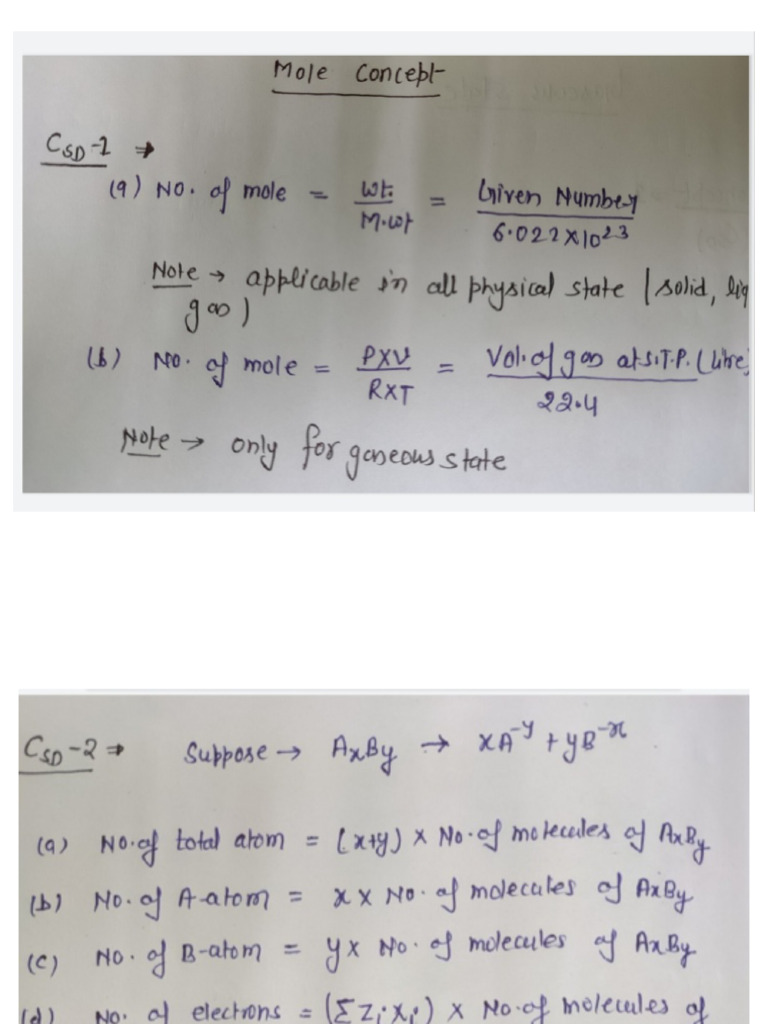 Mole Concept
CSD-1 →
(a) No. of mole = wt. / M.wt = Given Number / 6.022×10²³
Note → applicable in all physical state (solid, liq
gas)
(b) No. of mole = P×V / R×T = Vol. of gas at S.T.P. (Litre) / 22.4
Note → only for gaseous state
CSD-2 ⇒ Suppose → AxBy → xA⁻ʸ + yB⁻ˣ
(a) No. of total atom = (x+y) × No. of molecules of AxBy
(b) No. of A-atom = x × No. of molecules of AxBy
(c) No. of B-atom = y × No. of molecules of AxBy
(d) No. of electrons = (ΣZᵢxᵢ) × No. of molecules of